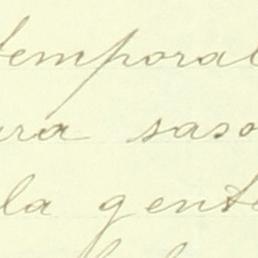 temporal
ura saso
la gente